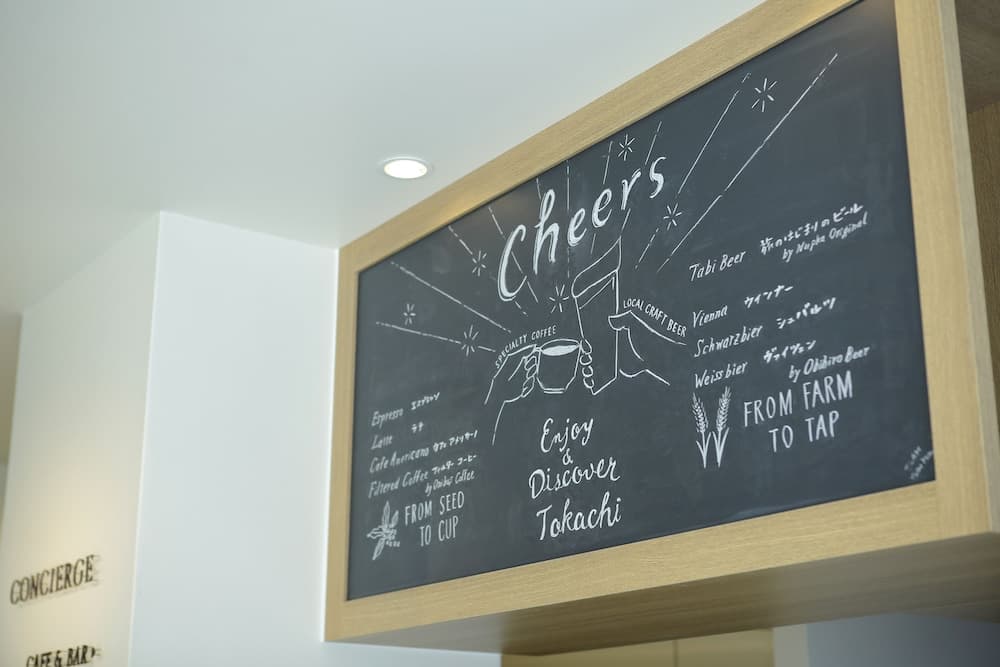 Cheers
SPECIALTY COFFEE
LOCAL CRAFT BEER
Enjoy
&
Discover
Tokachi
Espresso エスプレッソ
Latte ラテ
Cafe Americano カフェアメリカーノ
Filtered Coffee フィルターコーヒー
by Onibus Coffee
FROM SEED
TO CUP
Tabi Beer 旅のはじまりのビール
by Nupka Original
Vienna ウインナー
Schwarzbier シュバルツ
Weissbier ヴァイツェン
by Obihiro Beer
FROM FARM
TO TAP
CONCIERGE
CAFE & BAR